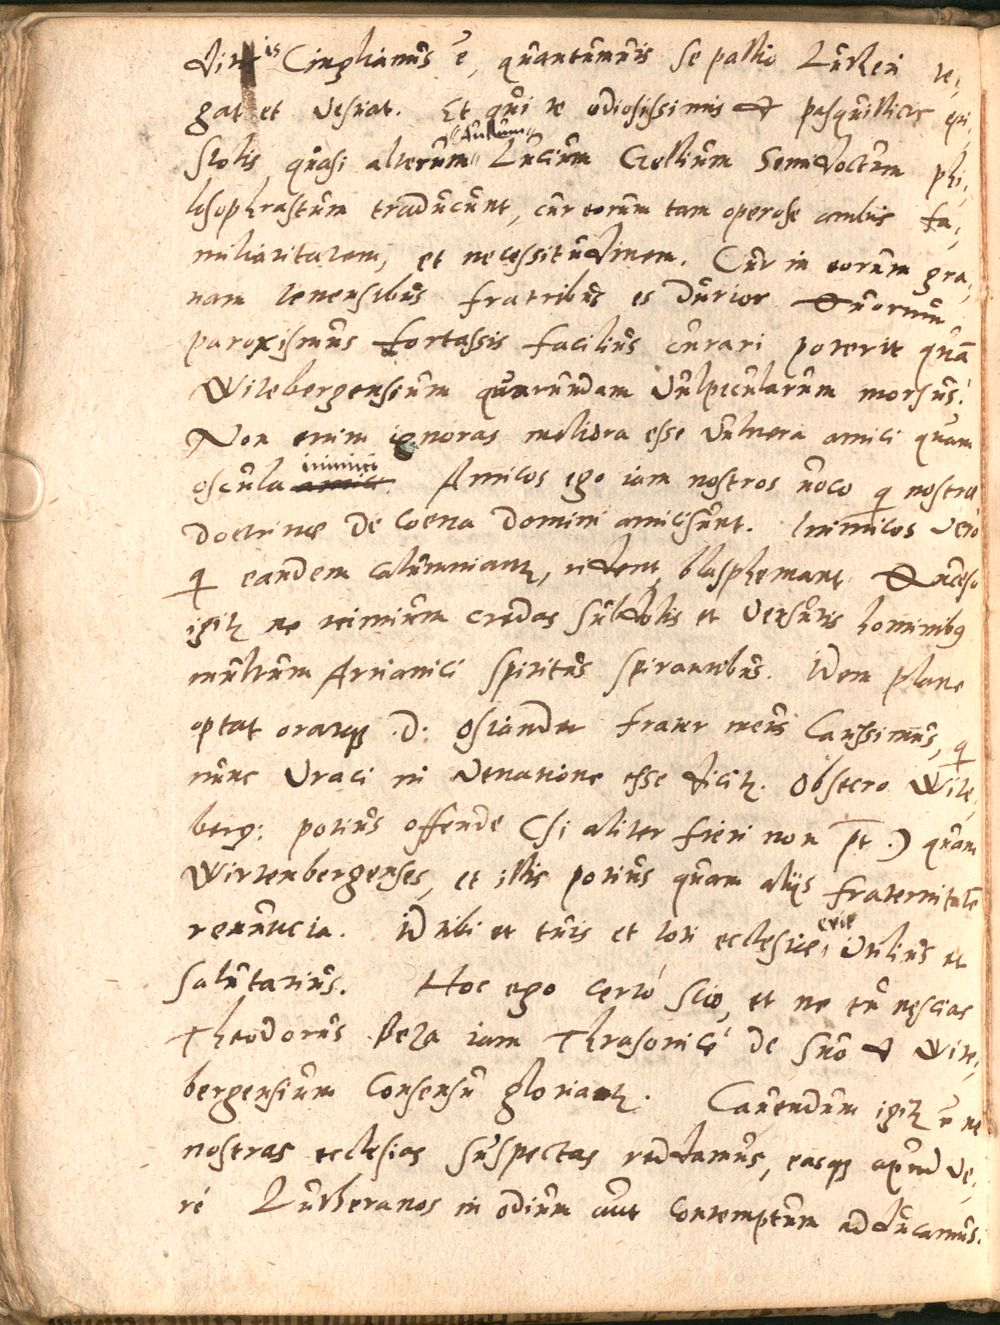 is Cinglianus ē, quantumuis se pallio Lutheri te,
gat et vestiat. Et qui te odiosissimis & pasquillicis epi,
stolis, quasi alterum stultum Lucium Gellium semidoctum phi,
losophrastum traducunt, cur eorum tam operose ambis fa,
miliaritatem, et necessitudinem. Cur in eorum gra,
tiam Ienensibus fratribus es durior & quorum
paroxismus fortassis facilius curari poterit quā
Witebergensium quarundam vulpicularum morsus.
Non enim ignoras meliora esse vulnera amici quam
oscula inimici. Amicos ego iam nostros uoco q̄ nostrae
doctrinae de coena Domini amici sunt. Inimicos vero
q̄ eandem calumniantꝛ, rident, blasphemant. Quaeso
igitꝛ ne nimium credas subdolis et versutis hominibꝰ
multum Arrianici spiritus spirantibus. Idem plane
optat oratqꝫ D: Osiander frater meus carissimus, q̄
nunc Uraci in venatione esse dicitꝛ. Obsecro Wite,
berg: potius offende (si aliter fieri non p̄t.) quam
Wirtenbergenses, et illis potius quam alijs fraternitatē
renuncia. Id tibi et tuis et toti ecclesiae erit utilius et
salutarius. Hoc ego certo scio, et ne tu nescias
Theodorus Beza iam Thrasonice de suo & Wite,
bergensium consensu gloriatꝛ. Cauendum igitꝛ ē ne
nostras ecclesias suspectas reddamus, easqꝫ apud ve,
re Lutheranos in odium aut contemptum adducamus.